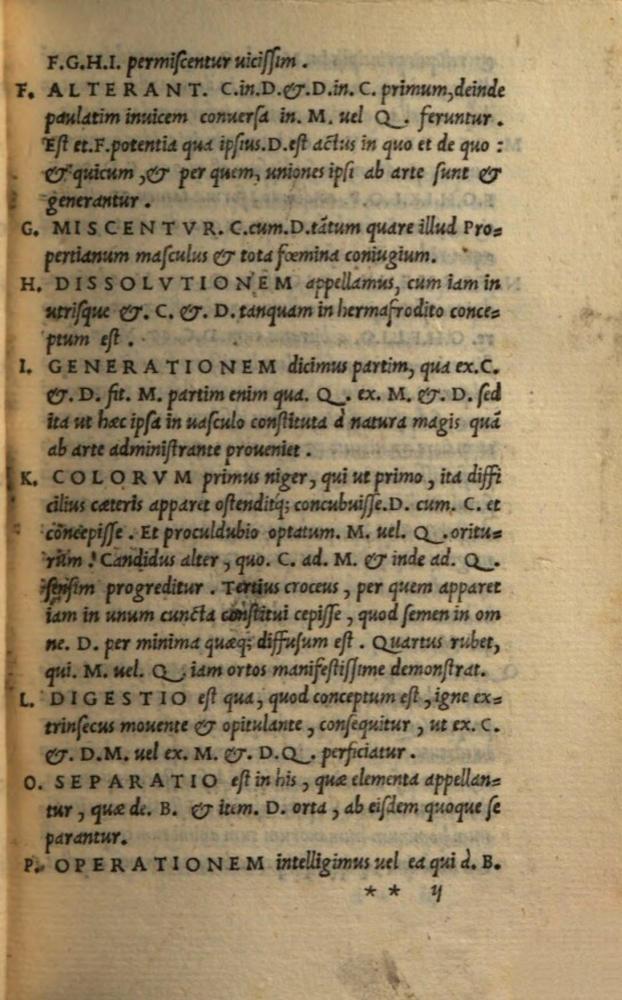 F.G.H.I. permiſcentur uiciſſim.
F. ALTERANT. C.in.D.&.D.in. C. primum,deinde
paulatim inuicem conuerſa in. M. uel Q. feruntur.
Eſt et.F.potentia qua ipſius.D.eſt actus in quo et de quo:
& quicum,& per quem, uniones ipſi ab arte ſunt &
generantur.
G. MISCENTVR. C.cum.D.tãtum quare illud Pro=
pertianum maſculus & tota fœmina coniugium.
H. DISSOLVTIONEM appellamus, cum iam in
utriſque &. C. &. D. tanquam in hermafrodito conce=
ptum eſt.
I. GENERATIONEM dicimus partim, qua ex.C.
&. D. fit. M. partim enim qua. Q. ex. M. &. D. ſed
ita ut hæc ipſa in uaſculo conſtituta à natura magis quã
ab arte adminiſtrante proueniet.
K. COLORVM primus niger, qui ut primo, ita diffi
cilius cæteris apparet oſtenditq; concubuiſſe.D. cum. C. et
cõcepiſſe. Et proculdubio optatum. M. uel. Q. oritu=
rum! Candidus alter, quo. C. ad. M. & inde ad. Q.
ſenſim progreditur. Tertius croceus, per quem apparet
iam in unum cuncta conſtitui cepiſſe, quod ſemen in om
ne. D. per minima quæq; diffuſum eſt. Quartus rubet,
qui. M. uel. Q. iam ortos manifeſtiſſime demonſtrat.
L. DIGESTIO eſt qua, quod conceptum eſt, igne ex=
trinſecus mouente & opitulante, conſequitur, ut ex. C.
&. D.M. uel ex. M. &. D.Q. perficiatur.
O. SEPARATIO eſt in his, quæ elementa appellan=
tur, quæ de. B. & item. D. orta, ab eiſdem quoque ſe
parantur.
P. OPERATIONEM intelligimus uel ea qui d. B.
* * ij